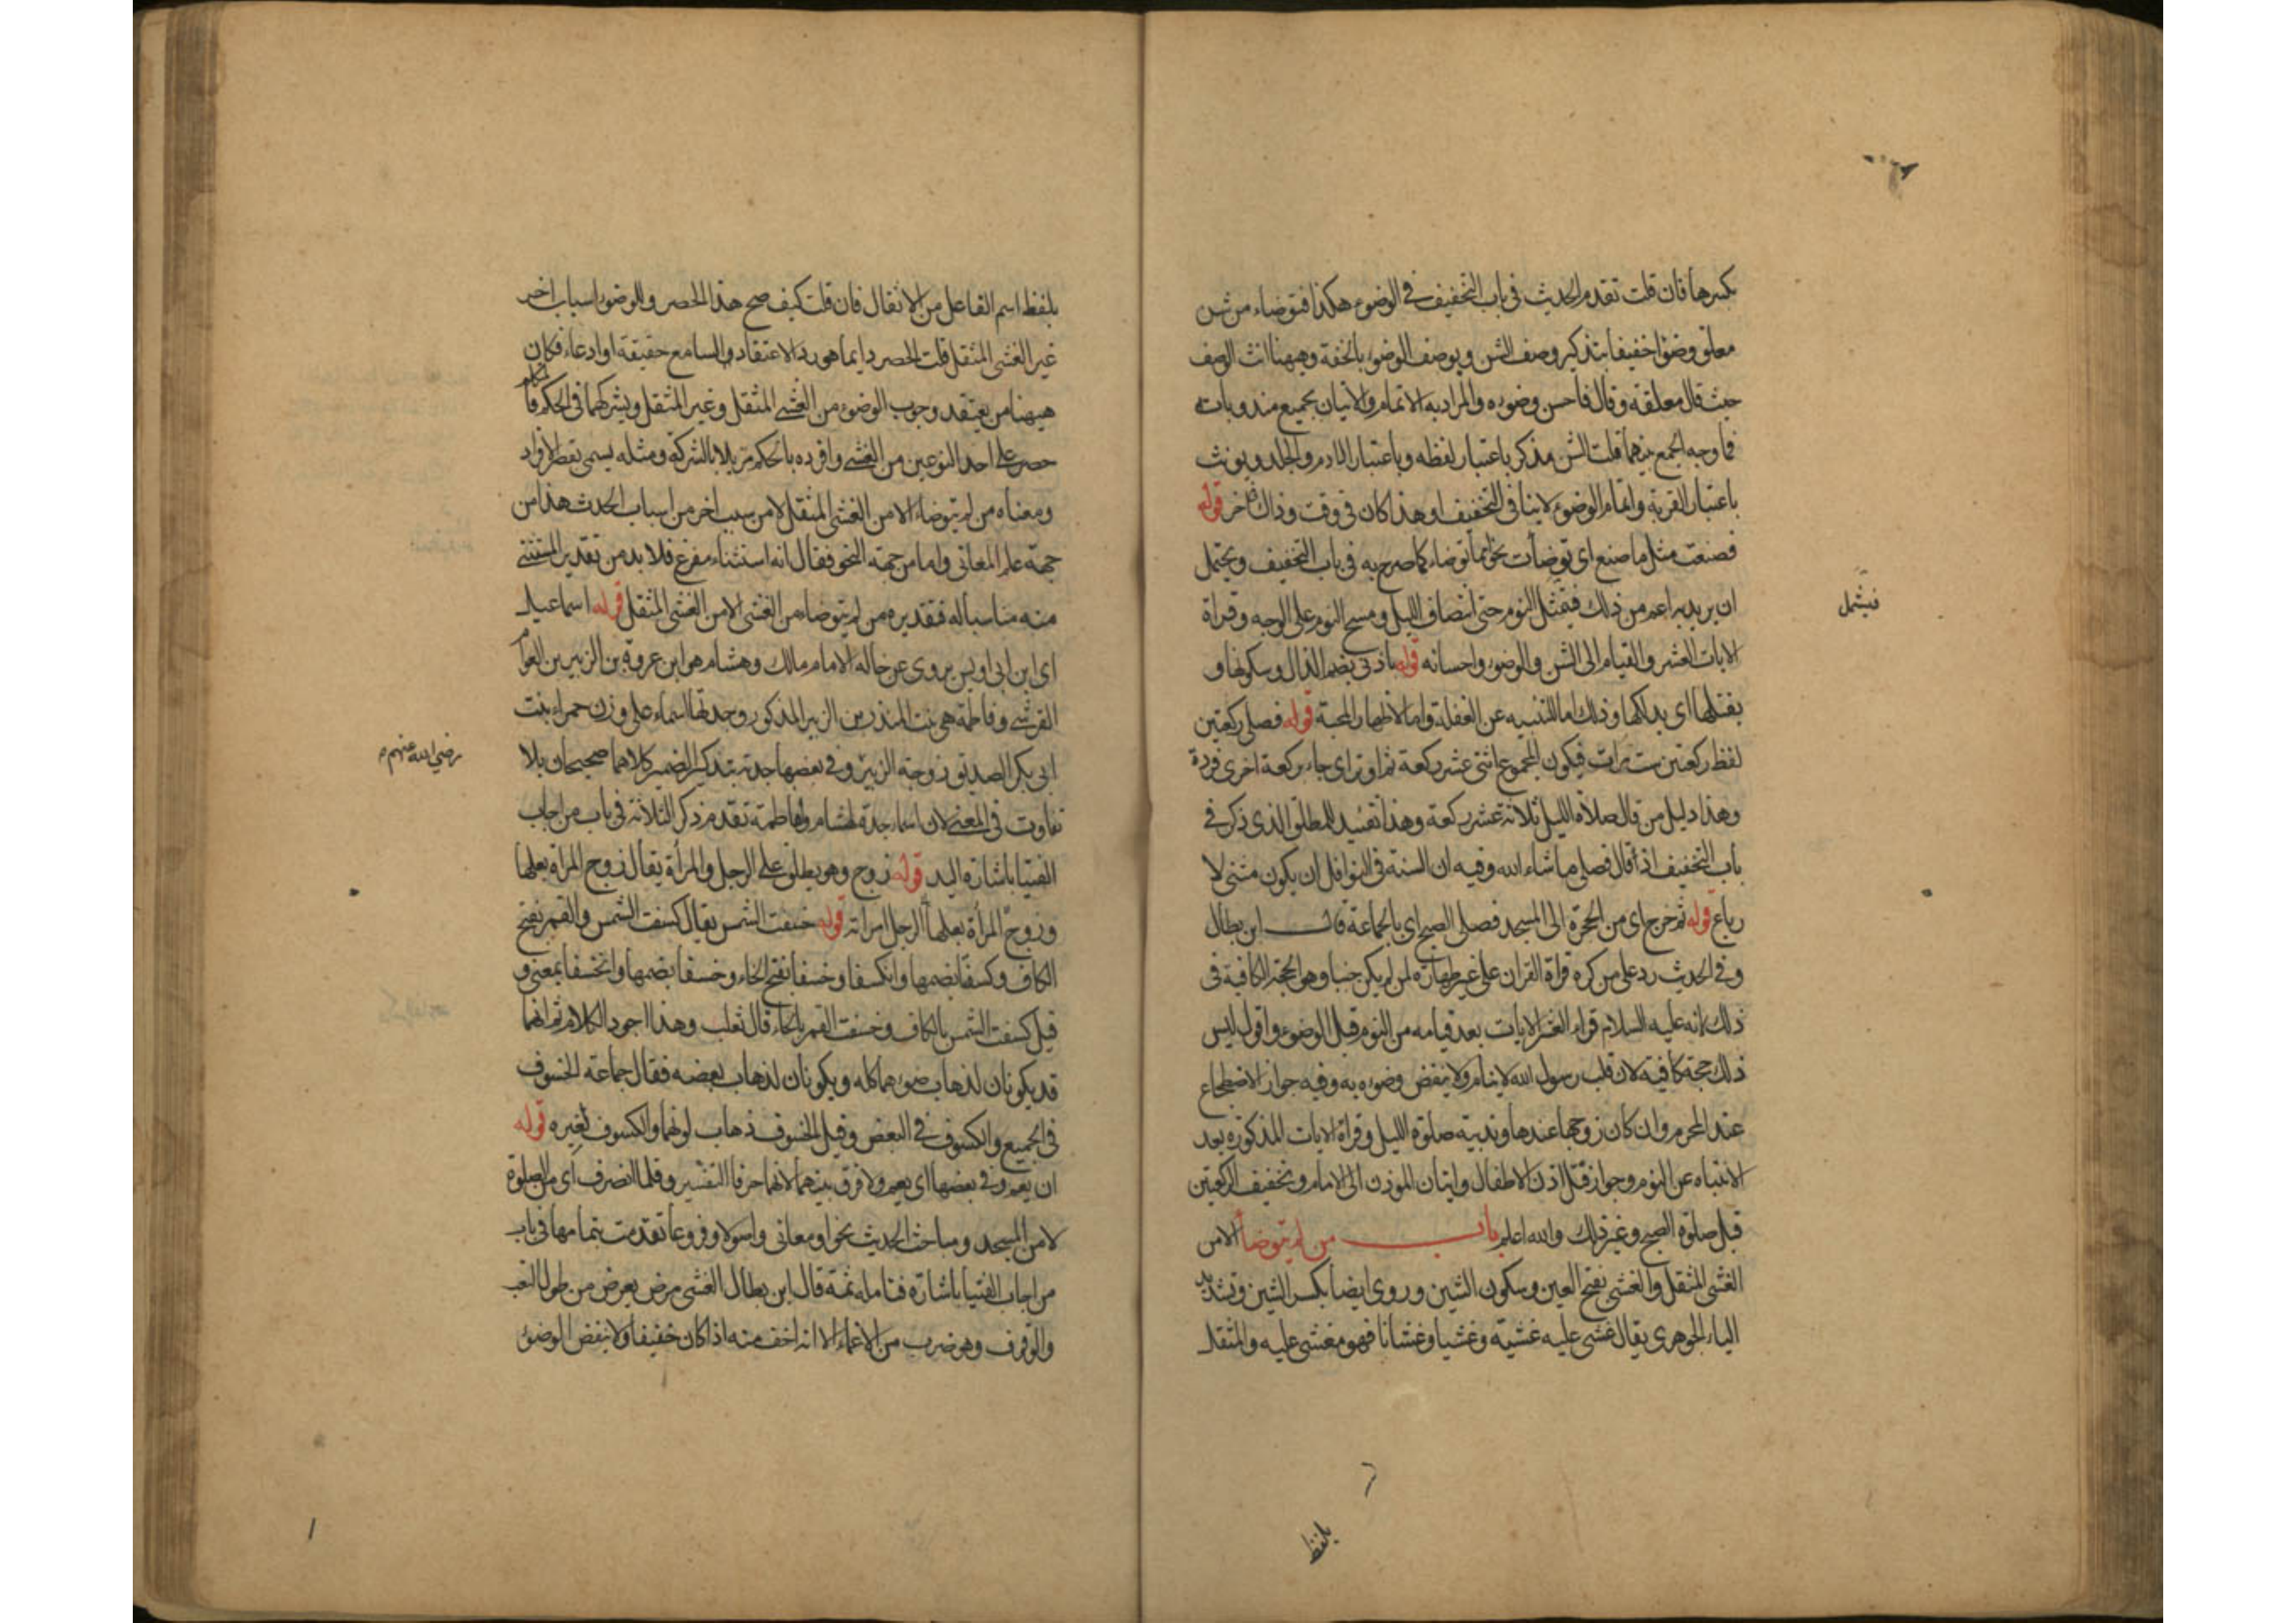 بكسرها فان قلت تقدم الحديث في باب التخفيف في الوضوء هكذا فتوضاء من شن
معلق وضوا خفيفا بتذكير وصف الشن وبوصف الوضوء بالخفة وههنا انث الوصف
حيث قال معلقة وقال فاحسن وضوءه والمراد به الاتمام والاتيان بجميع مندوباته
فما وجه الجمع بينهما قلت الشن مذكر باعتبار لفظه وباعتبار الادم والجلد ويونث
باعتبار القربة واتمام الوضوء لا ينافي التخفيف او هذا كان في وقت وذاك في اخر قوله
فصنعت مثل ما صنع اي توضأت نحوا مما توضاء كما صرح به في باب التخفيف ويحتمل
ان يريد به اعم من ذلك فيشمل النوم حتى انتصاف الليل ومسح النوم على الوجه وقراة
الايات العشر والقيام الى الشن والوضوء واحسانه قوله باذني بضم الذال وسكونها و
يفتلها اي يدلكها وذلك اما للتنبيه عن الغفلة واما لاظهار المحبة قوله فصلى ركعتين
لفظ ركعتين ست مرات فيكون المجموع اثنتي عشر ركعة ثم اوتر اي جاء بركعة اخرى فردة
وهذا دليل من قال صلاة الليل ثلاثة عشر ركعة وهذا تقييد للمطلق الذي ذكر في
باب التخفيف اذ قال فصلى ما شاء الله وفيه ان السنة في النوافل ان يكون مثنى لا
رباع قوله ثم خرج اي من الحجرة الى المسجد فصلى الصبح اي بالجماعة قال ابن بطال
وفي الحديث رد على من كره قراة القران على غير طهارة لمن لم يكن جنبا وهو الحجة الكافية في
ذلك لانه عليه السلام قراء العشر الايات بعد قيامه من النوم قبل الوضوء واقول ليس
ذلك حجة كافية لان قلب رسول الله لا ينام ولا ينقض وضوءه به وفيه جواز الاضطجاع
عند المحرم وان كان زوجها عندها وندبية صلوة الليل وقراة الايات المذكورة بعد
الانتباه عن النوم وجواز فتل اذن الاطفال واتيان الموذن الى الامام وتخفيف الركعتين
قبل صلوة الصبح وغير ذلك والله اعلم باب من لم يتوضأ الا من
الغشي المثقل والغشي بفتح الغين وسكون الشين وروي ايضا بكسر الشين وتشديد
الياء الجوهري يقال غشي عليه غشية وغشيا وغشانا فهو مغشي عليه والمثقل
فيشمل
بلفظ
بلفظ اسم الفاعل من الاثقال فان قلت كيف صح هذا الحصر وللوضوء اسباب اخر
غير الغشي المثقل قلت الحصر دايما هو رد الاعتقاد السامع حقيقة او ادعاء فكان
ههنا من يعتقد وجوب الوضوء من الغشي المثقل وغير المثقل ويشركهما في الحكم فالمتكلم
حصر على احد النوعين من الغشي وافرده بالحكم مزيلا بالشركة ومثله يسمى بقصر الافراد
ومعناه من لم يتوضاء الا من الغشي المثقل لا من سبب اخر من اسباب الحدث هذا من
جهة علم المعاني واما من جهة النحو فقال انه استثناء مفرغ فلا بد من تقدير المستثنى
منه مناسبا له فتقديره من لم يتوضاء من الغشي الا من الغشي المثقل قوله اسماعيل
اي ابن ابي اويس يروي عن خاله الامام مالك وهشام هو ابن عروة بن الزبير بن العوام
القرشي وفاطمة هي بنت المنذر بن الزبير المذكور وجدتها اسماء على وزن حمراء بنت
ابي بكر الصديق زوجة الزبير وفي بعضها جدته بتذكير الضمير كلاهما صحيحان بلا
تفاوت في المعنى لان اسماء جدة لهشام ولفاطمة تقدم ذكر الثلاثة في باب من اجاب
الفتيا باشارة اليد قوله زوج وهو يطلق على الرجل والمرأة يقال زوج المرأة بعلها
وزوج المرأة بعلها الرجل امراته قوله خسفت الشمس يقال كسفت الشمس والقمر بفتح
الكاف وكسفا بضمها وانكسفا وخسفا بفتح الخاء وخسفا بضمها وانخسفا بمعنى و
قيل كسفت الشمس بالكاف وخسفت القمر بالخاء قال ثعلب وهذا اجود الكلام ثم انهما
قد يكونان لذهاب ضوءهما كله ويكونان لذهاب بعضه فقال جماعة الخسوف
في الجميع والكسوف في البعض وقيل الخسوف ذهاب لونهما والكسوف لغيره قوله
ان نعم وفي بعضها اي نعم ولا فرق بينهما لانهما حرفا التفسير وفلما انصرف اي من الصلوة
لا من المسجد ومباحث الحديث نحوا ومعاني واصولا وفروعا تقدمت بتمامها في باب
من اجاب الفتيا باشارة فتامله ثمة قال ابن بطال الغشي مرض يعرض من طول التعب
والوقوف وهو ضرب من الاغماء الا انه اخف منه اذا كان خفيفا ولا ينقض الوضوء
رضي الله عنهم